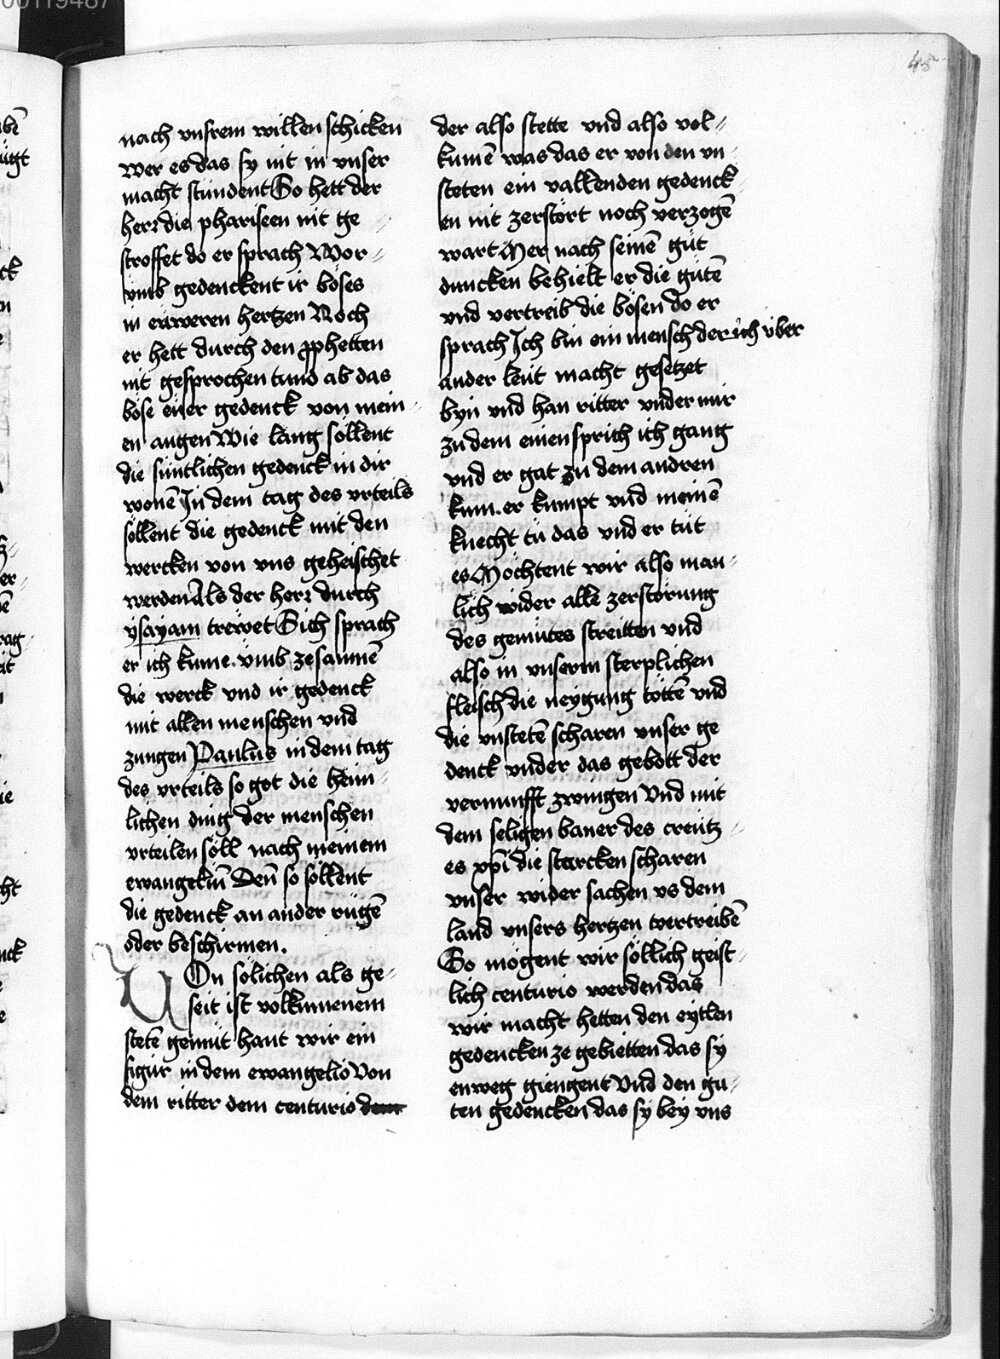 48
nach vnsrem willen schicken
Wer es das sy nit in vnser
macht stündent So hett der
herr die phariseen nit ge-
stroffet do er sprach Wor-
vmb gedenckent ir böses
in eüweren hertzen Noch
er hett durch den ꝓpheten
nit gesprochen tünd ab das
böse eüer gedenck von mein-
en augen Wie lang söllent
die süntlichen gedenck in dir
wonē In dem tag des vrteils
söllent die gedenck mit den
wercken von vns geheischet
werden Als der herr durch
ysayam tröwet Sich sprach
er ich kume vmb ze samnē
die werck vnd ir gedenck
mit allen menschen vnd
zungen Paulus in dem tag
des vrteils so got die heim-
lichen ding der menschen
vrteilen söll nach meinem
ewangeliū Deñ so söllent
die gedenck an ander rügē
oder beschirmen.
VOn sölichen als ge-
seit ist volkumenem
stetē gemüt hant wir ein
figur in dem ewangelio Von
dem ritter dem centurio
der also stette vnd also vol-
kumē was das er von den vn-
steten ein vallenden gedenck-
en nit zerstört noch verzogē
wart Mer nach seinē güt
duncken behielt er die gütē
vnd vertreib die bösen do er
sprach Ich bin ein mensch der ich über
ander leüt macht gesetzet
byn vnd han ritter vnder mir
zu dem einen sprich ich gang
vnd er gat zu dem andren
kum. er kumpt vnd meinē
knecht tü das vnd er tüt
es Möchtent wir also man-
lich wider alle zerstörung
des gemütes streitten vnd
also in vnserm sterplichen
fleisch die neygung töttē vnd
die vnstetē scharen vnser ge
denck vnder das gebott der
vernunfft zwingen Vnd mit
dem seligen baner des creütz-
es xp̄i die starcken scharen
vnser wider sachen vs dem
land vnsers hertzen vertreibē
So mögent wir söllich geist-
lich centurio werden das
wir macht hetten den eytlen
gedencken ze gebietten das sy
enweg giengent Vnd den gu-
ten gedencken das sy bey vns